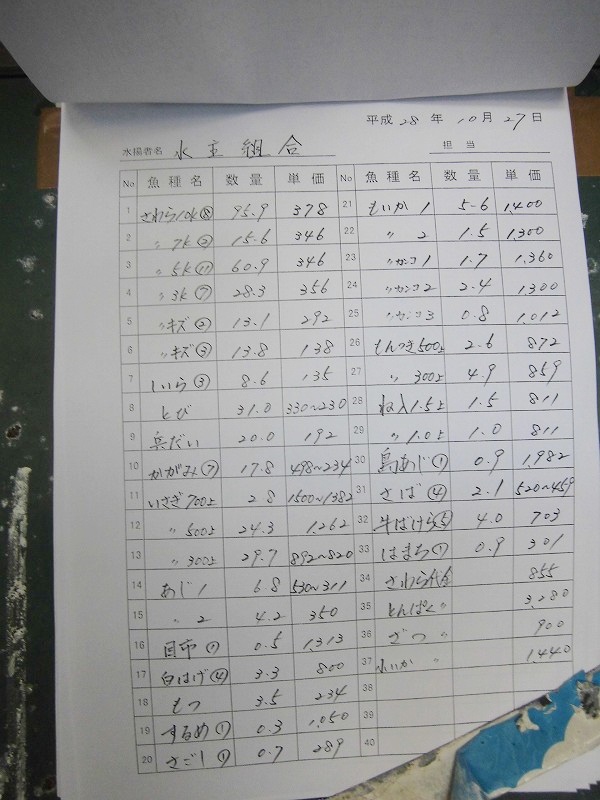 平成 28 年 10月 27日
水揚者名 水主組合 担当
No 魚種名 数量 単価
1 さわら10k⑧ 95.9 378
2 〃 7k② 15.6 346
3 〃 5k⑪ 60.9 346
4 〃 3k⑦ 28.3 356
5 〃キズ② 13.1 292
6 〃キズ③ 13.8 138
7 しいら③ 8.6 135
8 とび 31.0 330~230
9 真だい 20.0 192
10 かがみ⑦ 17.8 498~234
11 いさぎ700上 2.8 1500~1382
12 〃 500上 24.3 1,262
13 〃 300上 29.7 892~820
14 あじ 1 6.8 530~311
15 〃 2 4.2 350
16 目市① 0.5 1,313
17 白はげ④ 3.3 800
18 もつ 3.5 234
19 するめ① 0.3 1,050
20 さごし① 0.7 289
No 魚種名 数量 単価
21 もいか 1 5.6 1,400
22 〃 2 1.5 1,300
23 〃カンコ1 1.7 1,360
24 〃カンコ2 2.4 1300
25 〃カンコ3 0.8 1,012
26 もんつき500上 2.6 872
27 〃 300上 4.9 859
28 ね入1.5上 1.5 811
29 〃 1.0上 1.0 811
30 島あじ① 0.9 1,982
31 さば④ 2.1 520~459
32 牛ばけら⑤ 4.0 703
33 はまち① 0.9 301
34 さわら代金 855
35 とんぱく〃 3,280
36 ざつ 〃 900
37 小いか 〃 1,440
38
39
40